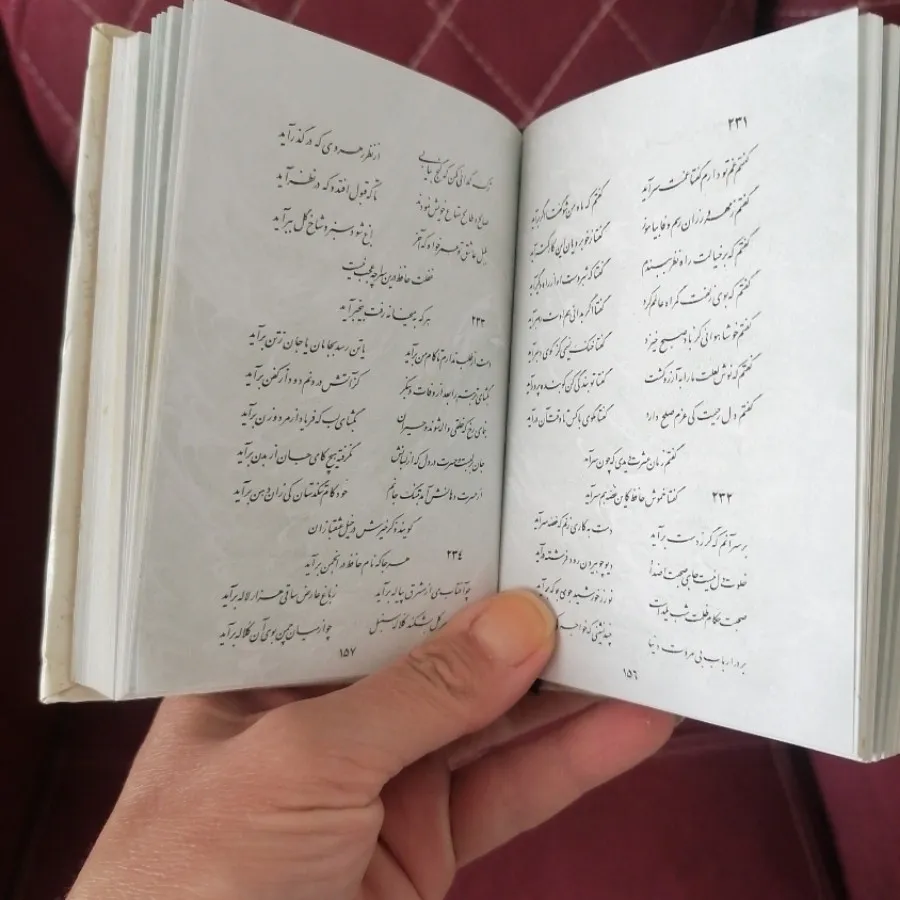 ۲۳۱
گفتم غم تو دارم گفتا غمت سرآید گفتم که ماه من شو گفتا اگر برآید
گفتم ز مهرورزان رسم وفا بیاموز گفتا ز خوبرویان این کار کمتر آید
گفتم که بر خیالت راه نظر ببندم گفتا که شبروست او از راه دیگر آید
گفتم که بوی زلفت گمراه عالمم کرد گفتا اگر بدانی هم اوت رهبر آید
گفتم خوشا هوائی کز باد صبح خیزد گفتا خنک نسیمی کز کوی دلبر آید
گفتم که نوش لعلت ما را به آرزو کشت گفتا تو بندگی کن کو بنده پرور آید
گفتم دل رحیمت کی عزم صلح دارد گفتا مگوی با کس تا وقت آن درآید
گفتم زمان عشرت دیدی که چون سرآید
گفتا خموش حافظ کاین غصه هم سرآید
۲۳۲
بر سر آنم که گر ز دست برآید دست به کاری زنم که غصه سرآید
خلوت دل نیست جای صحبت اضداد دیو چو بیرون رود فرشته درآید
صحبت حکام ظلمت شب یلداست نور ز خورشید جوی بو که برآید
بر در ارباب بی مروت دنیا چند نشینی که خواجه
۱۵۶
ترک گدائی مکن که گنج بیابی از نظر رهروی که در گذر آید
صالح و طالح متاع خویش نمودند تا که قبول افتد و که در نظر آید
بلبل عاشق تو عمر خواه که آخر باغ شود سبز و شاخ گل ببر آید
غفلت حافظ درین سراچه عجب نیست
هر که به میخانه رفت بیخبر آید
۲۳۳
دست از طلب ندارم تا کام من برآید یا تن رسد بجانان یا جان ز تن برآید
بگشای تربتم را بعد از وفات و بنگر کز آتش درونم دود از کفن برآید
بنمای رخ که خلقی واله شوند و حیران بگشای لب که فریاد از مرد و زن برآید
جان بر لبست و حسرت در دل که از لبانش نگرفته هیچ کامی جان از بدن برآید
از حسرت دهانش آمد به تنگ جانم خود کام تنگدستان کی زان دهن برآید
گویند ذکر خیرش در خیل عشقبازان
هر جا که نام حافظ در انجمن برآید
۲۳٤
چو آفتاب می از مشرق پیاله برآید ز باغ عارض ساقی هزار لاله برآید
سر گل بشکند کلاله سنبل چو از میان چمن بوی آن کلاله برآید
۱۵۷